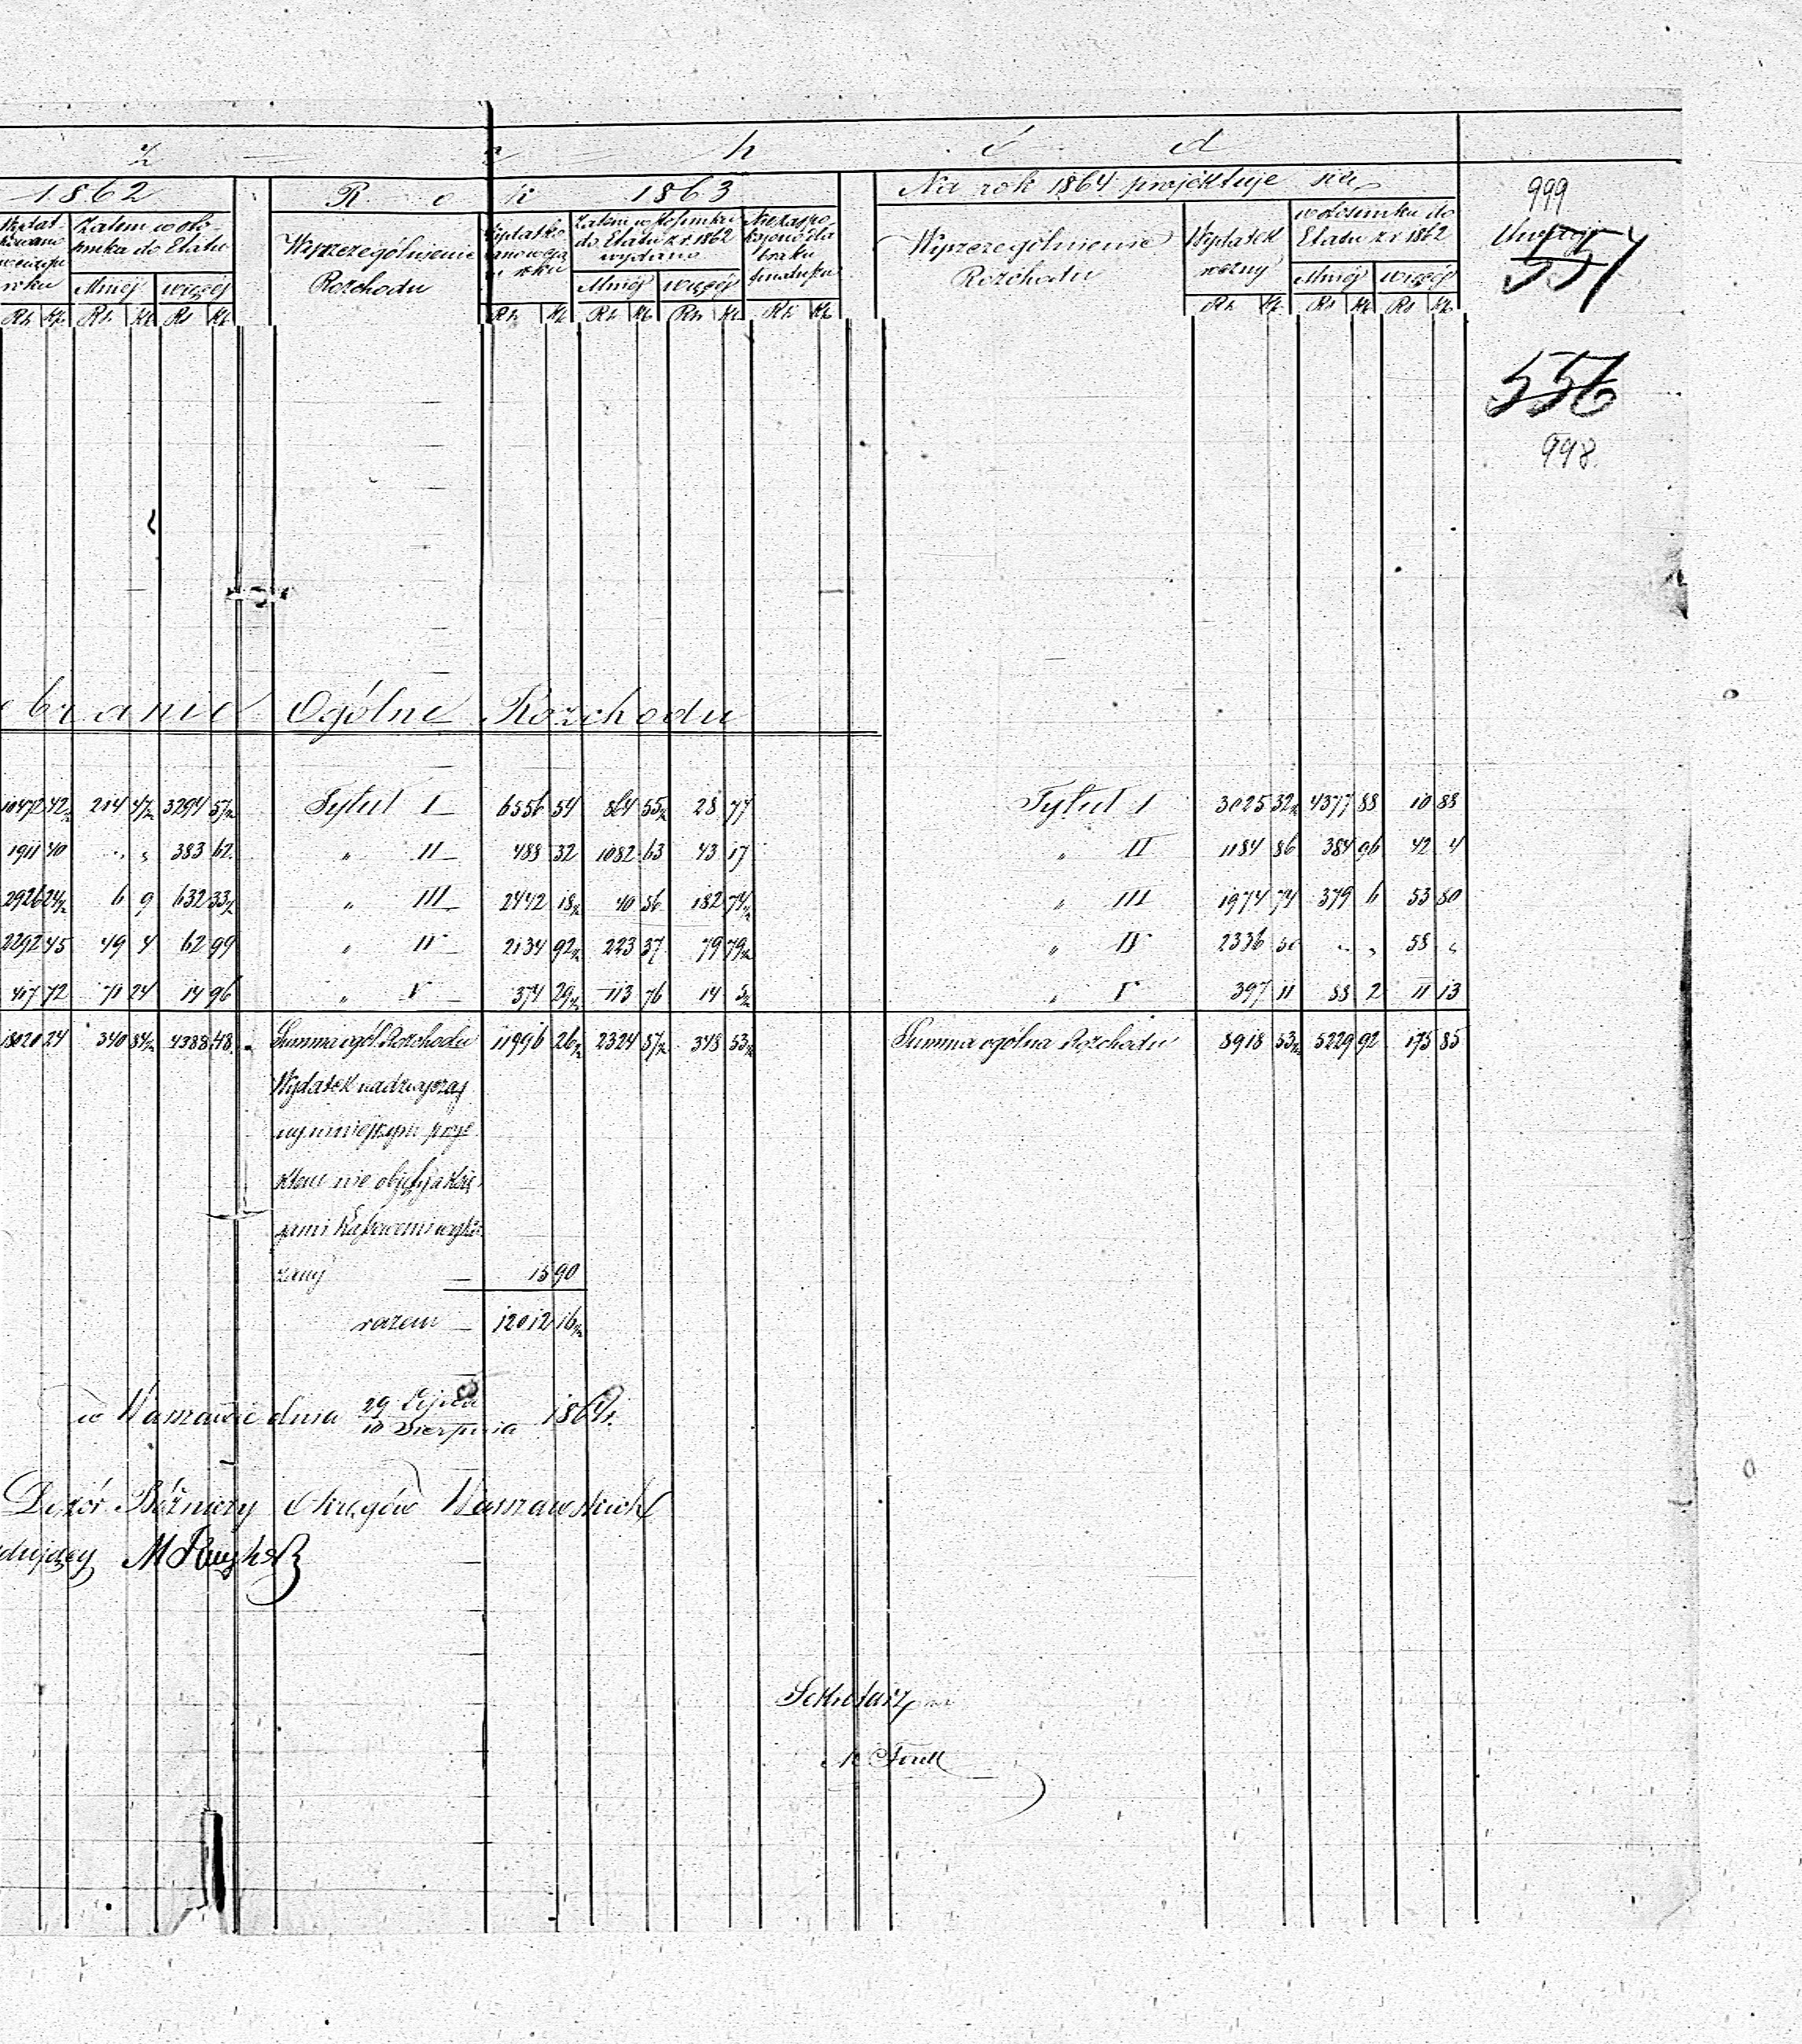 z c h ó d
1862 R o k 1863 Na rok 1864 projektuje się
999
Uwagi
557
556
998.
Zatem w sto
sunku do Etatu
Mniéj więcéj
Wyszczególnienie
Rozchodu
Zatem w stosunku
do Etatu z r. 1862
wydano
Mniéj więcéj
Wyszczególnienie
Rozchodu
Wydatek
roczny
w stosunku do
Etatu z r. 1862
Mniéj więcéj
Rs Kp Rs Kp Rs Kp Rs Kp Rs Kp Rs Kp Rs Kp Rs Kp Rs Kp Rs Kp
branie Ogólne Rozchodu
10472 42½ 214 47½ 3294 57½ Tytuł I 6556 54 864 55½ 28 77 Tytuł I 3025 32½ 4377 88 10 88
1911 40 „ „ 383 62 „ II 488 32 1082 63 43 17 „ II 1184 86 384 96 42 4
2926 24½ 6 9 632 33½ „ III 2442 18½ 40 56 182 74½ „ III 1974 74 379 6 53 80
2292 45 49 4 62 99 „ IV 2134 92½ 223 37 79 79½ „ IV 2336 50 „ „ 58 „
417 72 71 24 14 96 „ V 374 29½ 113 76 14 5½ „ V 397 11 88 2 11 13
18020 24 340 84½ 4388 48 Summa ogól. Rozchodu 11996 26½ 2324 87½ 348 53½ Summa ogólna Rozchodu 8918 53½ 5229 92 175 85
Wydatek nadzwyczaj
ny niniejszym proje
ktem nie objęty a
zany 15 90
razem 12012 16½
w Warszawie dnia 29 Lipca
10 Sierpnia 1864 r.
Dozór Bóżniczy Okręgów Warszawskich
Sekretarz